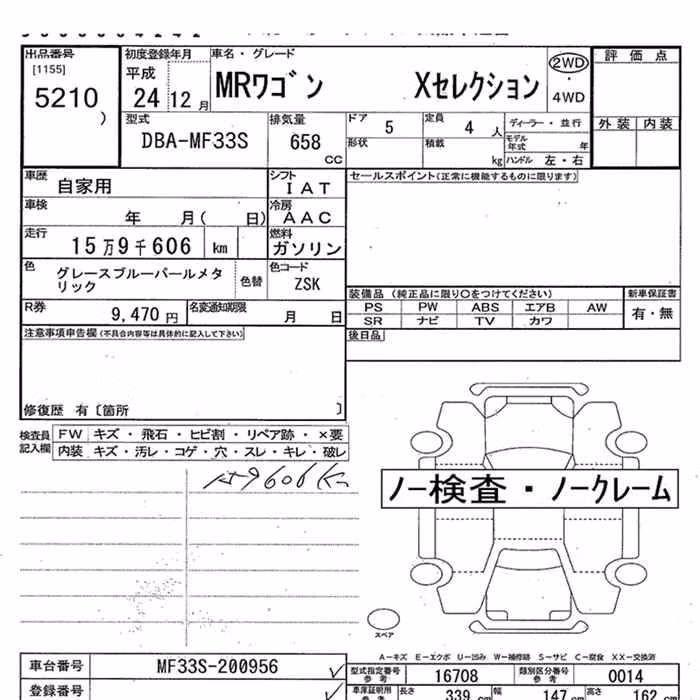 出品番号
[1155]
5210
)
初度登録年月
平成
24 12 月
車名・グレード
MRワゴン Xセレクション
2WD
・
4WD
評価点
外装 内装
型式
DBA-MF33S
排気量
658
CC
ドア
5
定員
4 人
ディーラー・並行
形状
積載
kg
モデル年式 年
ハンドル 左・右
車歴
自家用
シフト
IAT
車検
年 月( 日)
冷房
AAC
走行
15万9千606 km
燃料
ガソリン
色
グレースブルーパールメタリック
色替
色コード
ZSK
R券
9,470 円
名変通知期限
月 日
セールスポイント(正常に機能するものに限ります)
装備品 (純正品に限り○をつけてください)
PS PW ABS エアB AW
SR ナビ TV カワ
新車保証書
有・無
後日品
注意事項申告欄(不具合内容等は具体的に記入して下さい)
修復歴 有〔箇所 〕
検査員
記入欄
FW キズ・飛石・ヒビ割・リペア跡・×要
内装 キズ・汚レ・コゲ・穴・スレ・キレ・破レ
ノー検査・ノークレーム
スペア
A-キズ E-エクボ U-凹み W-補修跡 S-サビ C-腐食 XX-交換済
車台番号
MF33S-200956
型式指定番号
参考
16708
類別区分番号
参考
0014
登録番号
車庫証明用
参考
長さ 339 cm
幅 147 cm
高さ 162 cm